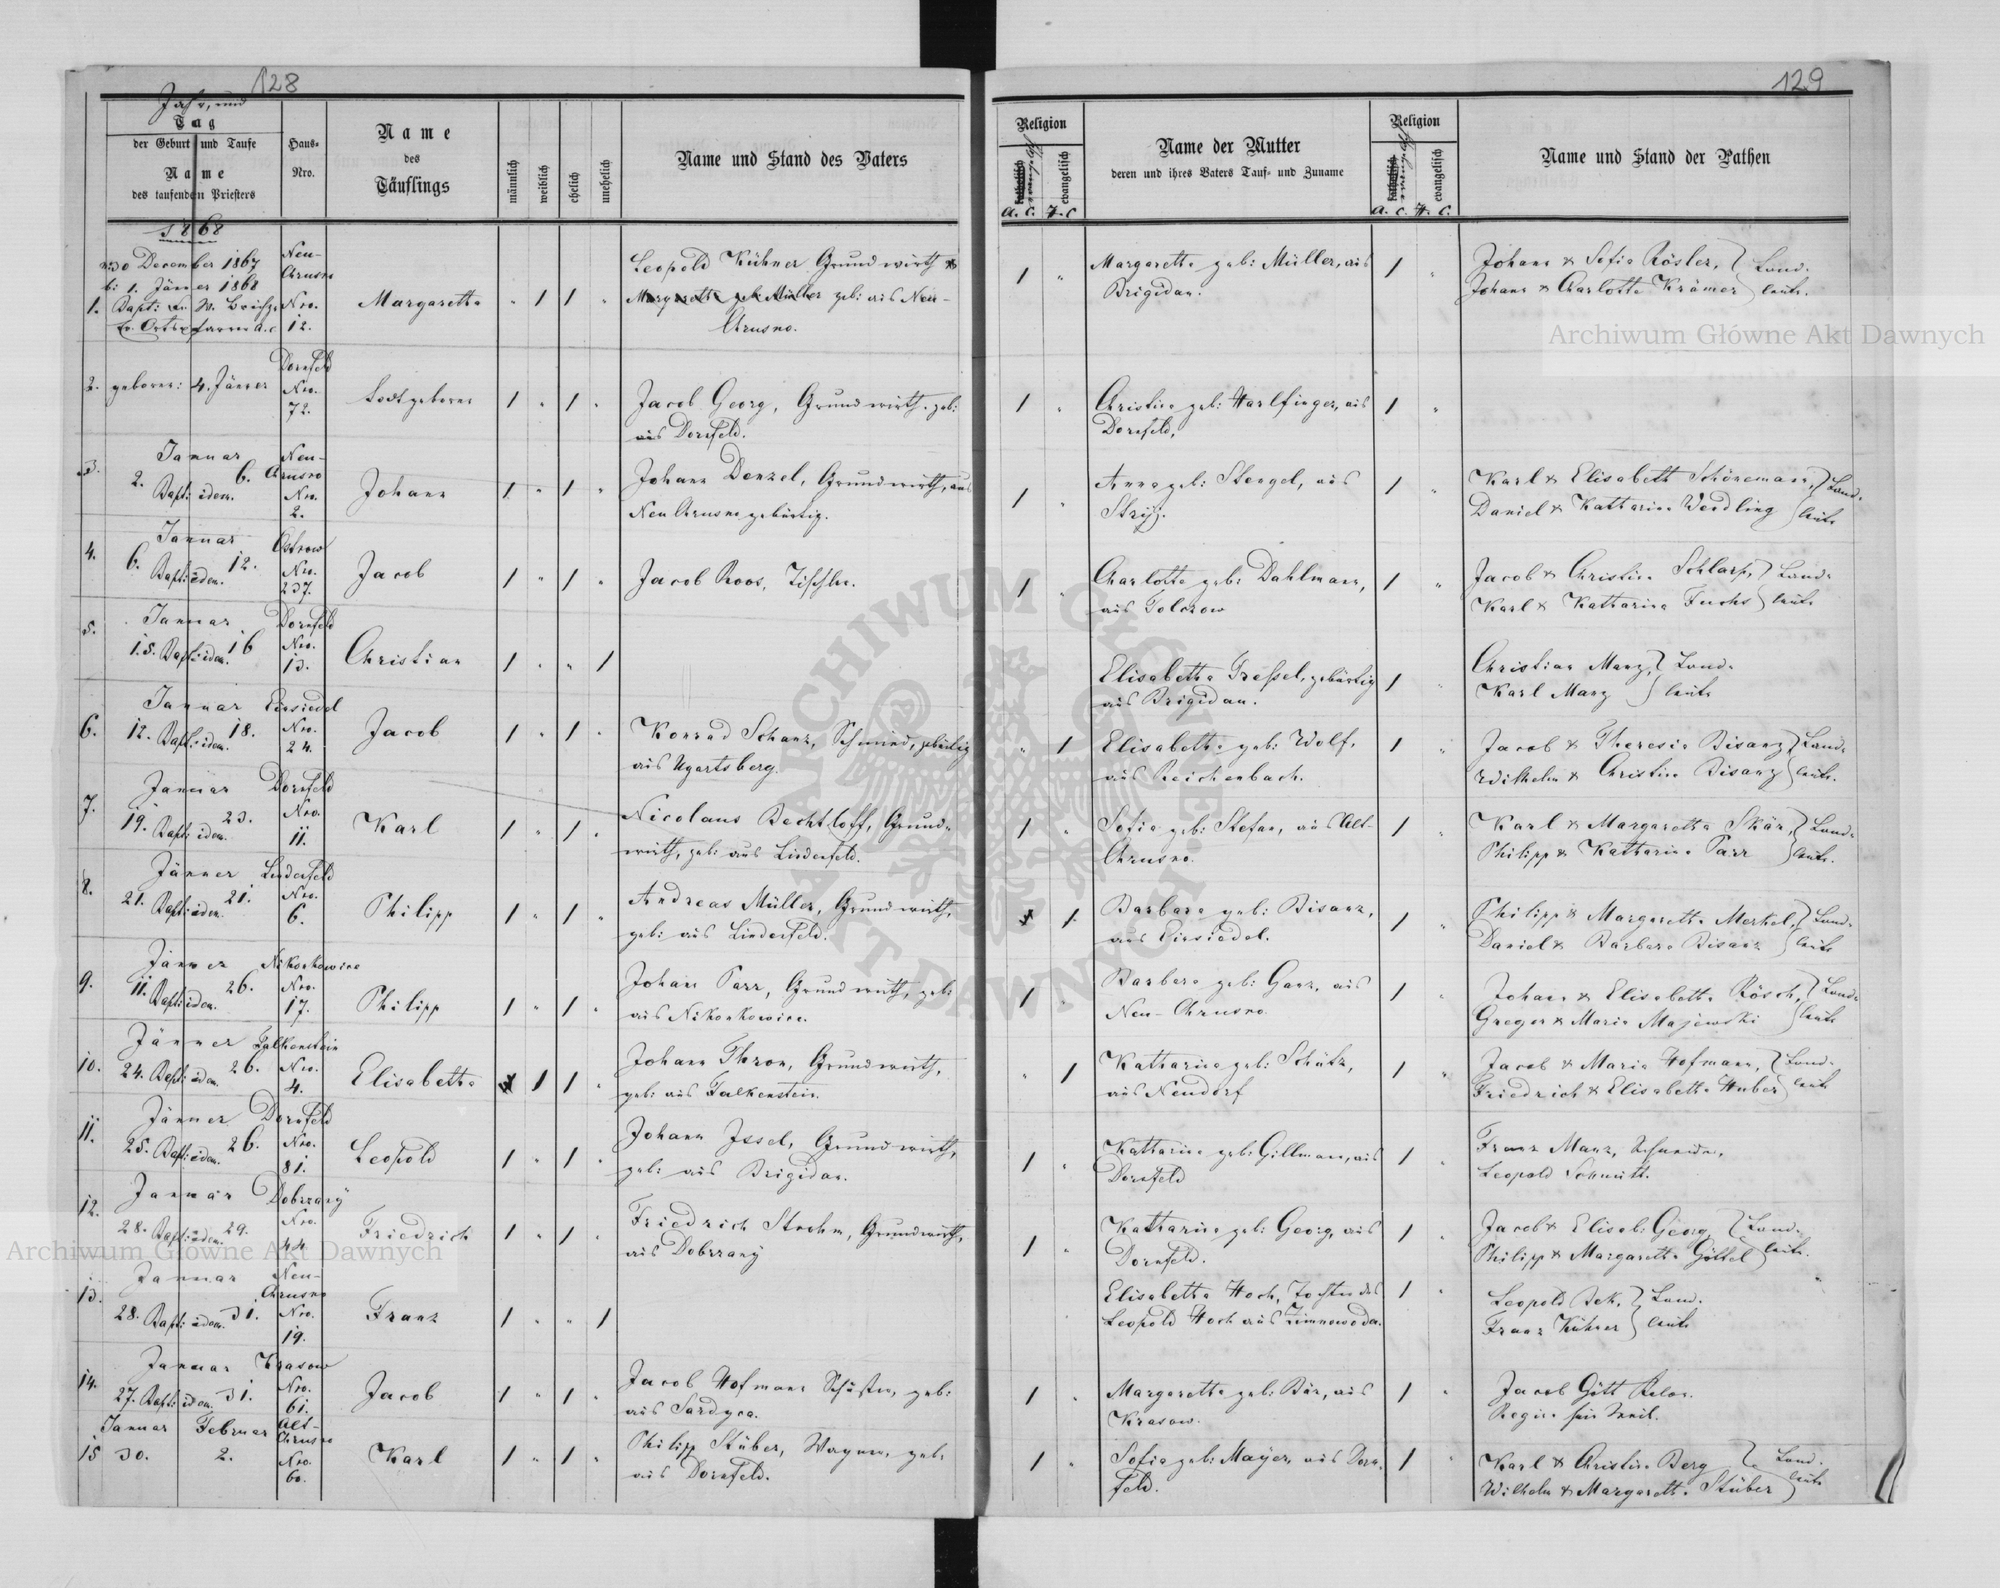 128
129
Jahr und
Tag
der Geburt und Taufe
Name
des taufenden Priesters
Haus-
Nro.
Name
des
Täuflings
männlich
weiblich
ehelich
unehelich
Name und Stand des Vaters
Religion
evangelisch
A. C. H. C.
Name der Mutter
deren und ihres Vaters Tauf- und Zuname
Religion
evangelisch
A. C. H. C.
Name und Stand der Pathen
1868
1.
30 December 1867
1. Jänner 1868
Neu-
Chrusno
Nro.
12.
Margaretha
" 1 1 "
Leopold Kühner Grundwirth
Margaretha geb. Müller geb: aus Neu-
Chrusno.
1 "
Margaretha geb: Müller, aus
Brigidau.
1 "
Johann & Sofia Rösler, Land-
Johann & Charlotte Krämer leute.
2. geboren: 4. Jänner
Dornfeld
Nro.
72.
todtgeboren
1 " 1 "
Jacob Georg, Grundwirth, geb:
aus Dornfeld.
1 "
Christina geb: Harlfinger, aus
Dornfeld,
1 "
3.
Januar
2. 6.
Bapt: idem.
Neu-
Chrusno
Nro.
2.
Johann
1 " 1 "
Johann Denzel, Grundwirth, aus
Neu Chrusno gebürtig.
1 "
Anna geb: Stengel, aus
Stryj.
1 "
Karl & Elisabeth Schöneman, Land-
Daniel & Katharina Wendling leute
4.
Januar
6. 12.
Bapt: idem.
Ostrow
Nro.
237.
Jacob
1 " 1 "
Jacob Roos, Tischler.
1 "
Charlotte geb: Dahlmann,
aus
1 "
Jacob & Christina Schlarp, Land-
Karl & Katharina Fuchs leute
5.
Januar
15. Bapt: idem. 16
Dornfeld
Nro.
13.
Christian
1 " " 1
Elisabetha Tressel, gebürtig
aus Brigidau.
1 "
Christian Manz, Land-
Karl Manz leute
6.
Januar
12. Bapt: idem. 18.
Einsiedel
Nro.
24.
Jacob
1 " 1 "
Konrad Schanz, Schmied, gebürtig
aus Ugartsberg.
" 1
Elisabetha geb: Wolf,
aus Reichenbach.
1 "
Jacob & Theresia Bisanz Land-
Wilhelm & Christina Bisanz leute.
7.
Januar
19. Bapt: idem. 23.
Dornfeld
Nro.
11.
Karl
1 " 1 "
Nicolaus Bechtloff, Grund-
wirth, geb: aus Linderfeld.
1 "
Sofia geb: Stefan, aus Alt-
Chrusno.
1 "
Karl & Margaretha Skär, Land-
Philipp & Katharina Parr leute.
8.
Jänner
21. Bapt: idem. 21.
Linderfeld
Nro.
6.
Philipp
1 " 1 "
Andreas Müller, Grundwirth,
geb: aus Linderfeld.
1.
Barbara geb: Bisanz,
aus Einsiedel.
1 "
Philipp & Margaretha Merkel, Land-
Daniel & Barbara Bisanz leute
9.
Jänner
11. Bapt: idem. 26.
Nikonkowice
Nro.
17.
Philipp
1 " 1 "
Johann Parr, Grundwirth, geb:
aus Nikonkowice.
1 "
Barbara geb: Ganz, aus
Neu-Chrusno.
1 "
Johann & Elisabetha Rösch, Land-
Gregor & Maria Majewski leute
10.
Jänner
24. Bapt: idem. 26.
Falkenstein
Nro.
4.
Elisabetha
1 1 "
Johann Thron, Grundwirth,
geb: aus Falkenstein.
" 1
Katharina geb: Schütz,
aus Neudorf
1 "
Jacob & Maria Hofmann, Land-
Friedrich & Elisabetha Huber leute
11.
Jänner
25. Bapt: idem. 26.
Dornfeld
Nro.
81.
Leopold
1 " 1 "
Johann Issel, Grundwirth,
geb: aus Brigidau.
1 "
Katharina geb: Gillmann, aus
Dornfeld
1 "
Franz Manz, Schneider,
Leopold Schmitt.
12.
Januar
28. Bapt: idem. 29.
Dobrzany
Nro.
44
Friedrich
1 " 1 "
Friedrich Strohm, Grundwirth,
aus Dobrzany
1 "
Katharina geb: Georg, aus
Dornfeld.
1 "
Jacob & Elisab: Georg Land-
Philipp & Margaretha Göttel leute.
13.
Januar
28. Bapt: idem. 31.
Neu-
Chrusno
Nro.
19.
Franz
1 " " 1
Elisabetha Hoch, Tochter des
Leopold Hoch aus Zimnowoda.
1 "
Leopold Bek, Land-
Franz Kühner leute
14.
Januar
27. Bapt: idem. 31.
Krasow
Nro.
61.
Jacob
1 " 1 "
Jacob Hofmann Schuster, geb:
aus
1 "
Margaretha geb: Bär, aus
Krasow.
1 "
Jacob Gött
Regina sein Weib.
15
Januar Februar
30. 2.
Alt-
Chrusno
Nro.
60.
Karl
1 " 1 "
Philipp Stüber, Wagner, geb:
aus Dornfeld.
1 "
Sofia geb: Mayer, aus Dorn-
feld.
1 "
Karl & Christina Berg Land-
Wilhelm & Margareth. Stüber leute
Archiwum Główne Akt Dawnych
Archiwum Główne Akt Dawnych
ARCHIWUM GŁÓWNE AKT DAWNYCH